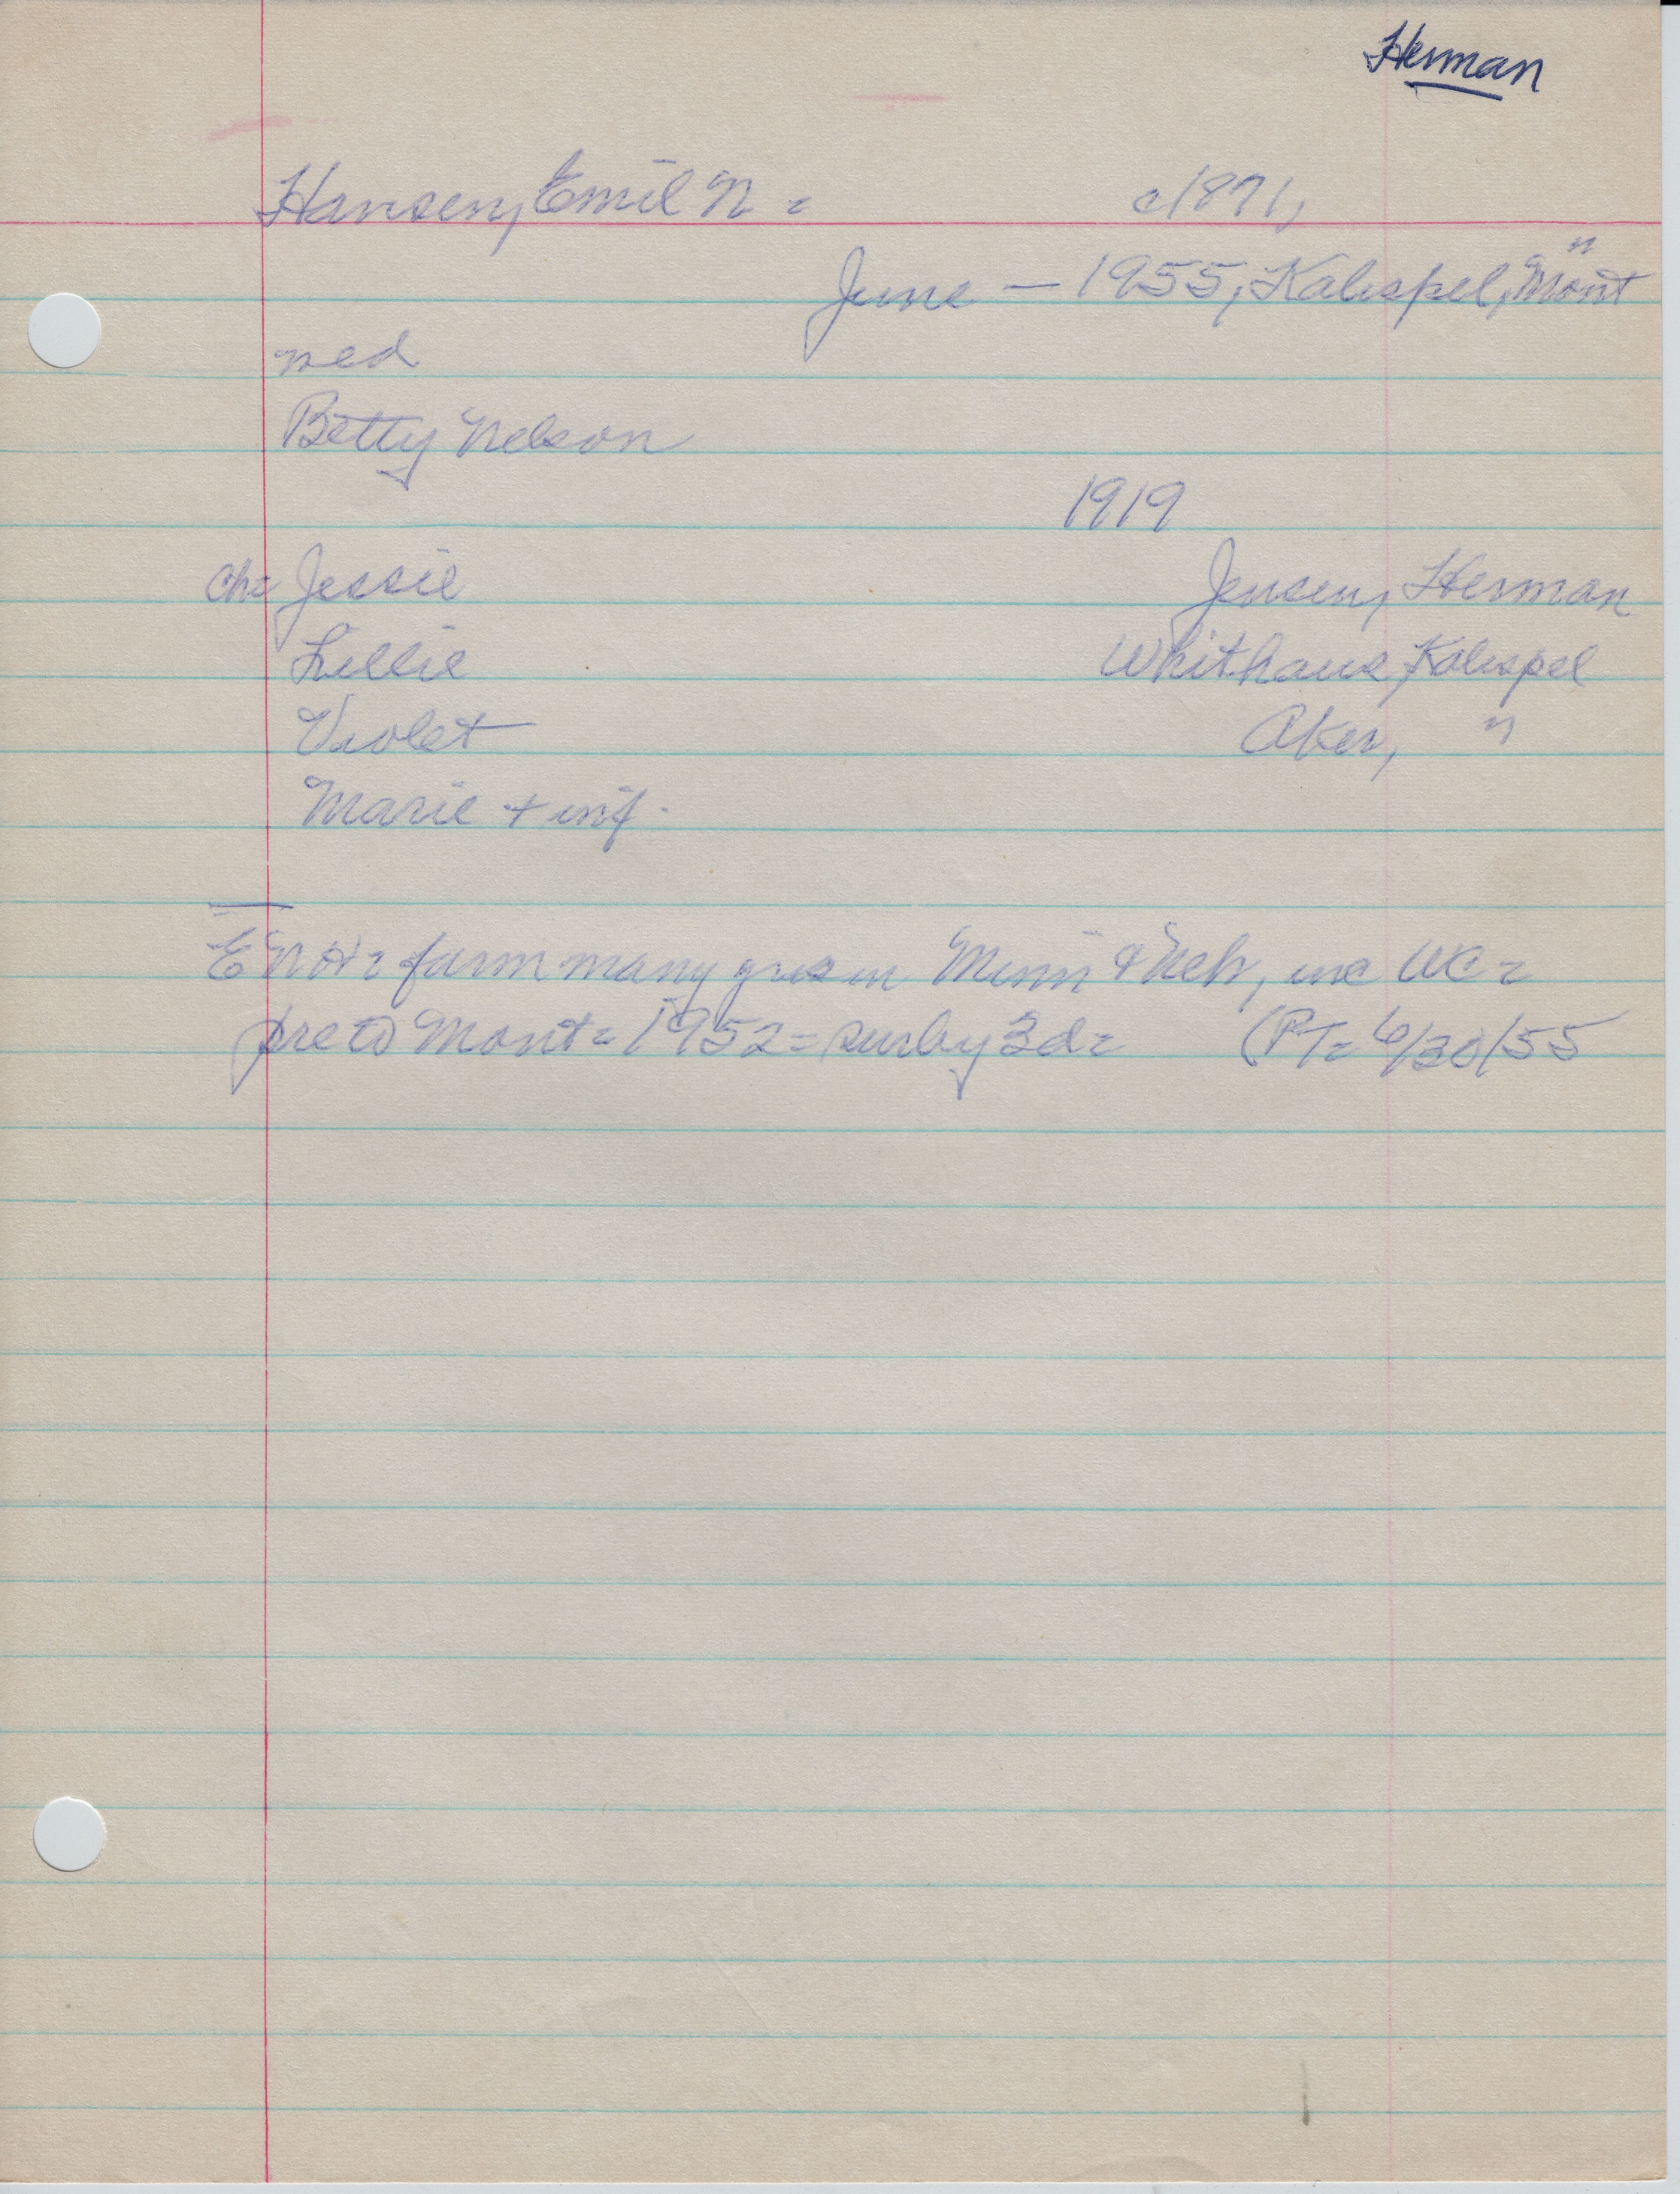 Herman
Hansen, Emil N = c1871,
June — 1955, Kalispel, Mont "
med
Betty Nelson
1919
ch= Jessie Jensen, Herman
Lillie Whithaus, Kalispel
Violet Aker, "
Marie + inf.
ENH= farm many yrs in Minn & Neb, inc WC=
pre to Mont= 1952= sur by 3d= (PT= 6/30/55